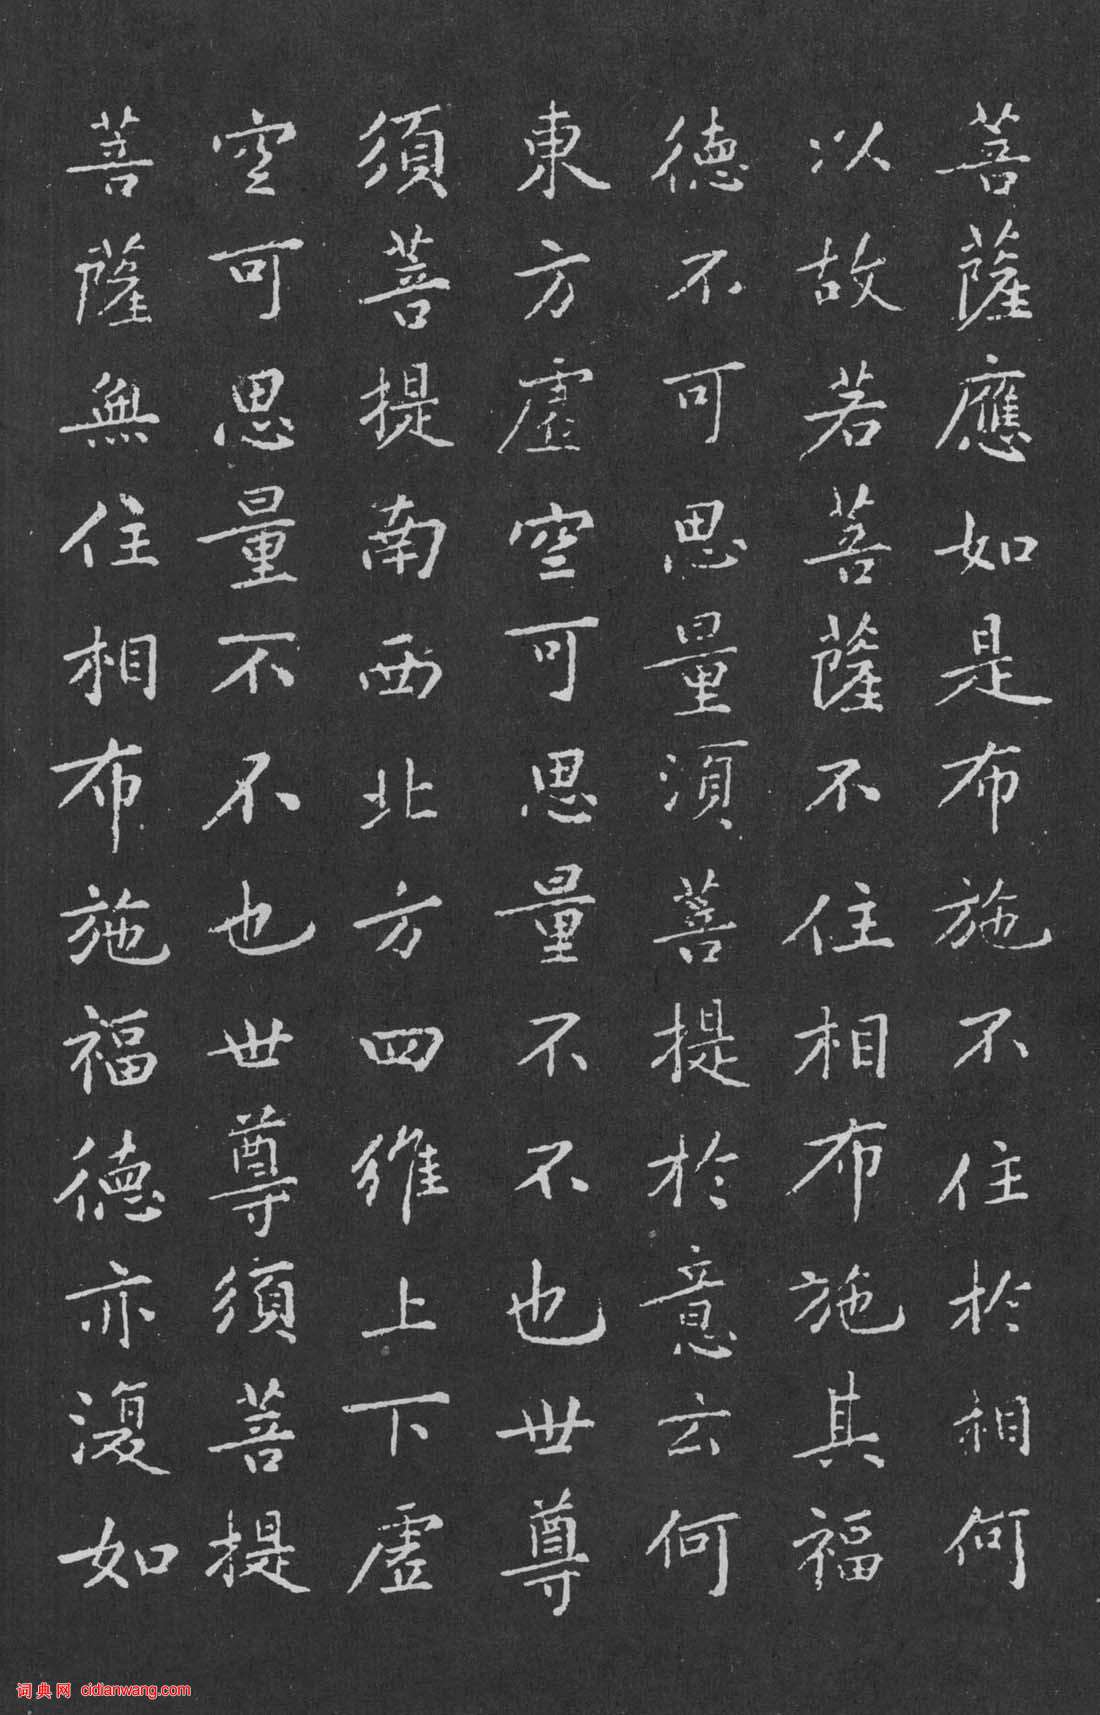 菩薩應如是布施不住於相何
以故若菩薩不住相布施其福
德不可思量須菩提於意云何
東方虛空可思量不不也世尊
須菩提南西北方四維上下虛
空可思量不不也世尊須菩提
菩薩無住相布施福德亦復如
词典网 cidianwang.com